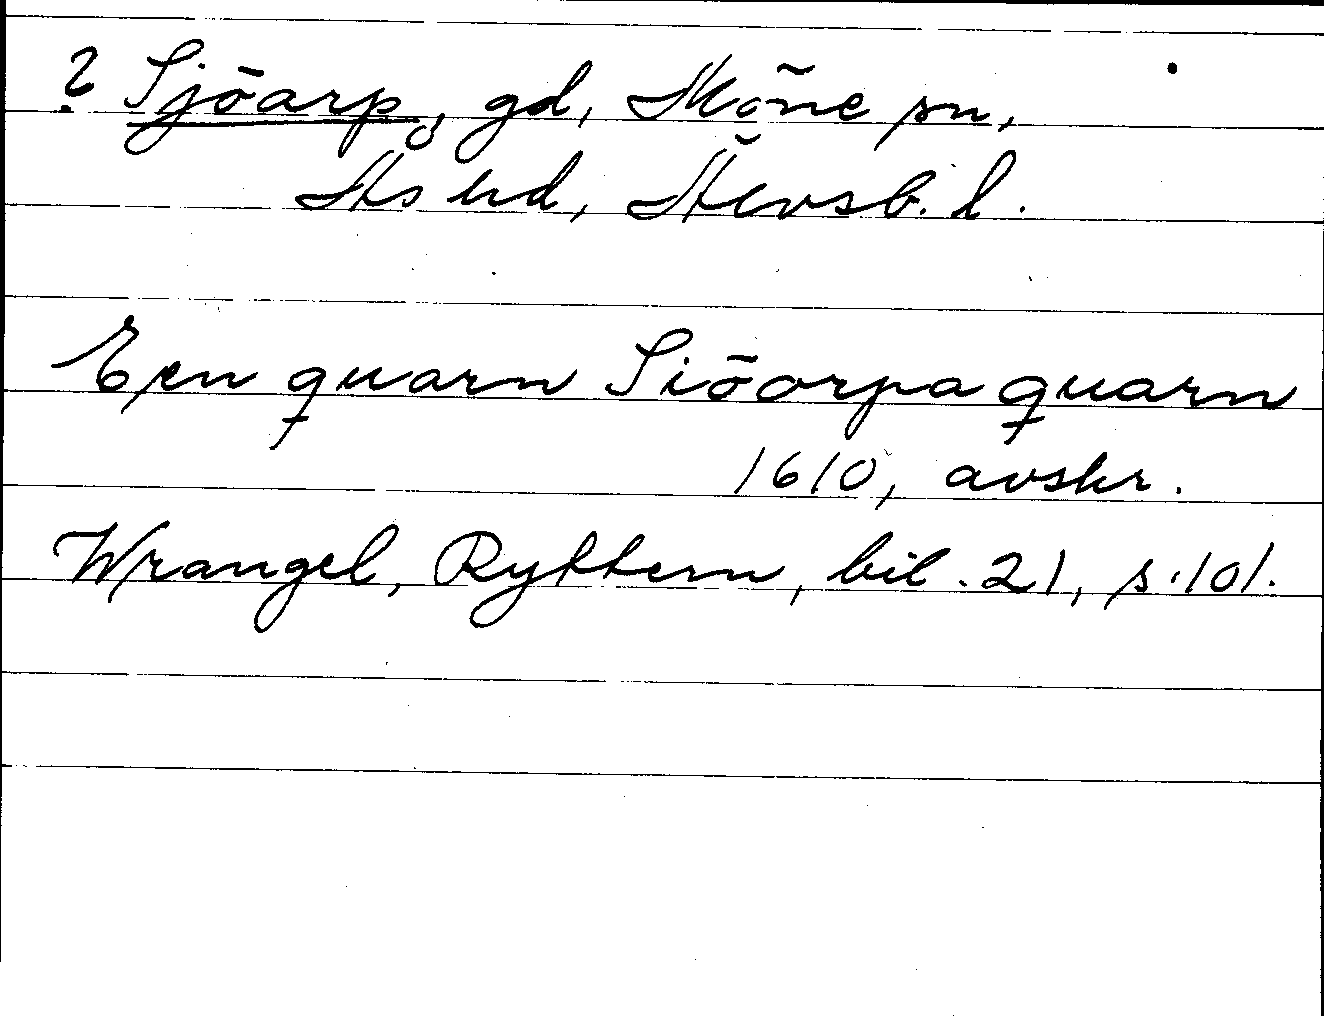 ? Sjöarp, gd, Möne sn,
Ås hd, Älvsb. l.
Een quarn Siöorpa quarn
1610, avskr.
Wrangel, Ryttern, bil. 21, s. 101.